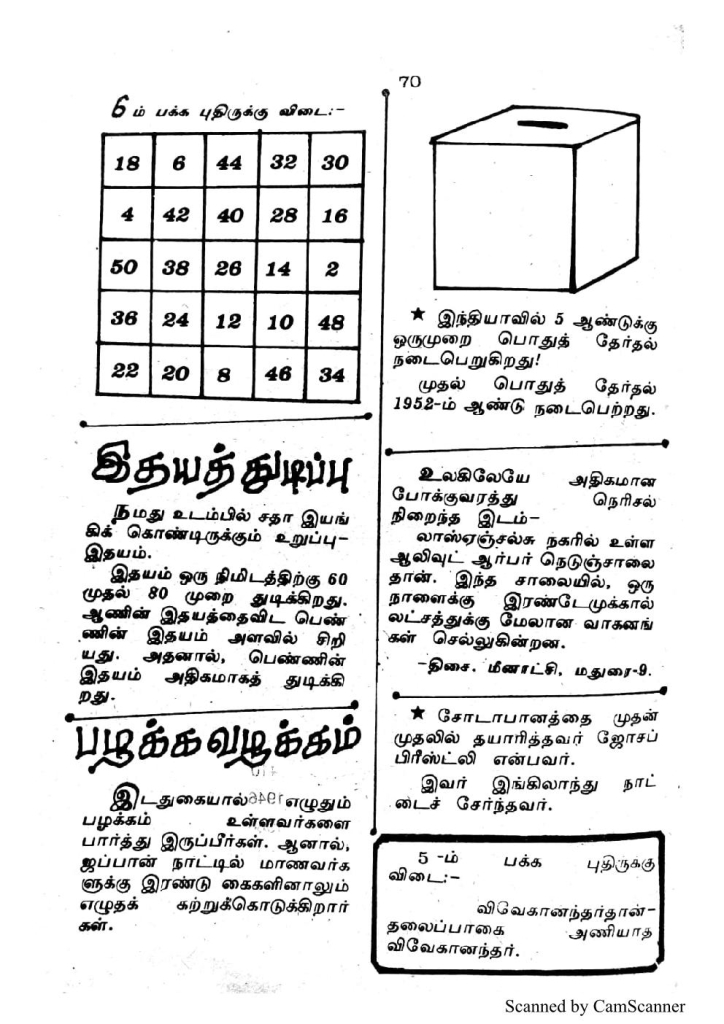 70
6ம் பக்க புதிருக்கு விடை:-
18 6 44 32 30
4 42 40 28 16
50 38 26 14 2
36 24 12 10 48
22 20 8 46 34
இதயத் துடிப்பு
நமது உடம்பில் சதா இயங்
கிக் கொண்டிருக்கும் உறுப்பு-
இதயம்.
இதயம் ஒரு நிமிடத்திற்கு 60
முதல் 80 முறை துடிக்கிறது.
ஆணின் இதயத்தைவிட பெண்
ணின் இதயம் அளவில் சிறி
யது. அதனால், பெண்ணின்
இதயம் அதிகமாகத் துடிக்கி
றது.
பழக்க வழக்கம்
இடதுகையால் எழுதும்
பழக்கம் உள்ளவர்களை
பார்த்து இருப்பீர்கள். ஆனால்,
ஜப்பான் நாட்டில் மாணவர்க
ளுக்கு இரண்டு கைகளினாலும்
எழுதக் கற்றுக்கொடுக்கிறார்
கள்.
★ இந்தியாவில் 5 ஆண்டுக்கு
ஒருமுறை பொதுத் தேர்தல்
நடைபெறுகிறது!
முதல் பொதுத் தேர்தல்
1952-ம் ஆண்டு நடைபெற்றது.
உலகிலேயே அதிகமான
போக்குவரத்து நெரிசல்
நிறைந்த இடம்-
லாஸ்ஏஞ்சல்சு நகரில் உள்ள
ஆலிவுட் ஆர்பர் நெடுஞ்சாலை
தான். இந்த சாலையில், ஒரு
நாளைக்கு இரண்டேமுக்கால்
லட்சத்துக்கு மேலான வாகனங்
கள் செல்லுகின்றன.
-திசை. மீனாட்சி, மதுரை-9.
★ சோடாபானத்தை முதன்
முதலில் தயாரித்தவர் ஜோசப்
பிரீஸ்ட்லி என்பவர்.
இவர் இங்கிலாந்து நாட்
டைச் சேர்ந்தவர்.
5 -ம் பக்க புதிருக்கு
விடை:-
விவேகானந்தர்தான்-
தலைப்பாகை அணியாத
விவேகானந்தர்.
Scanned by CamScanner